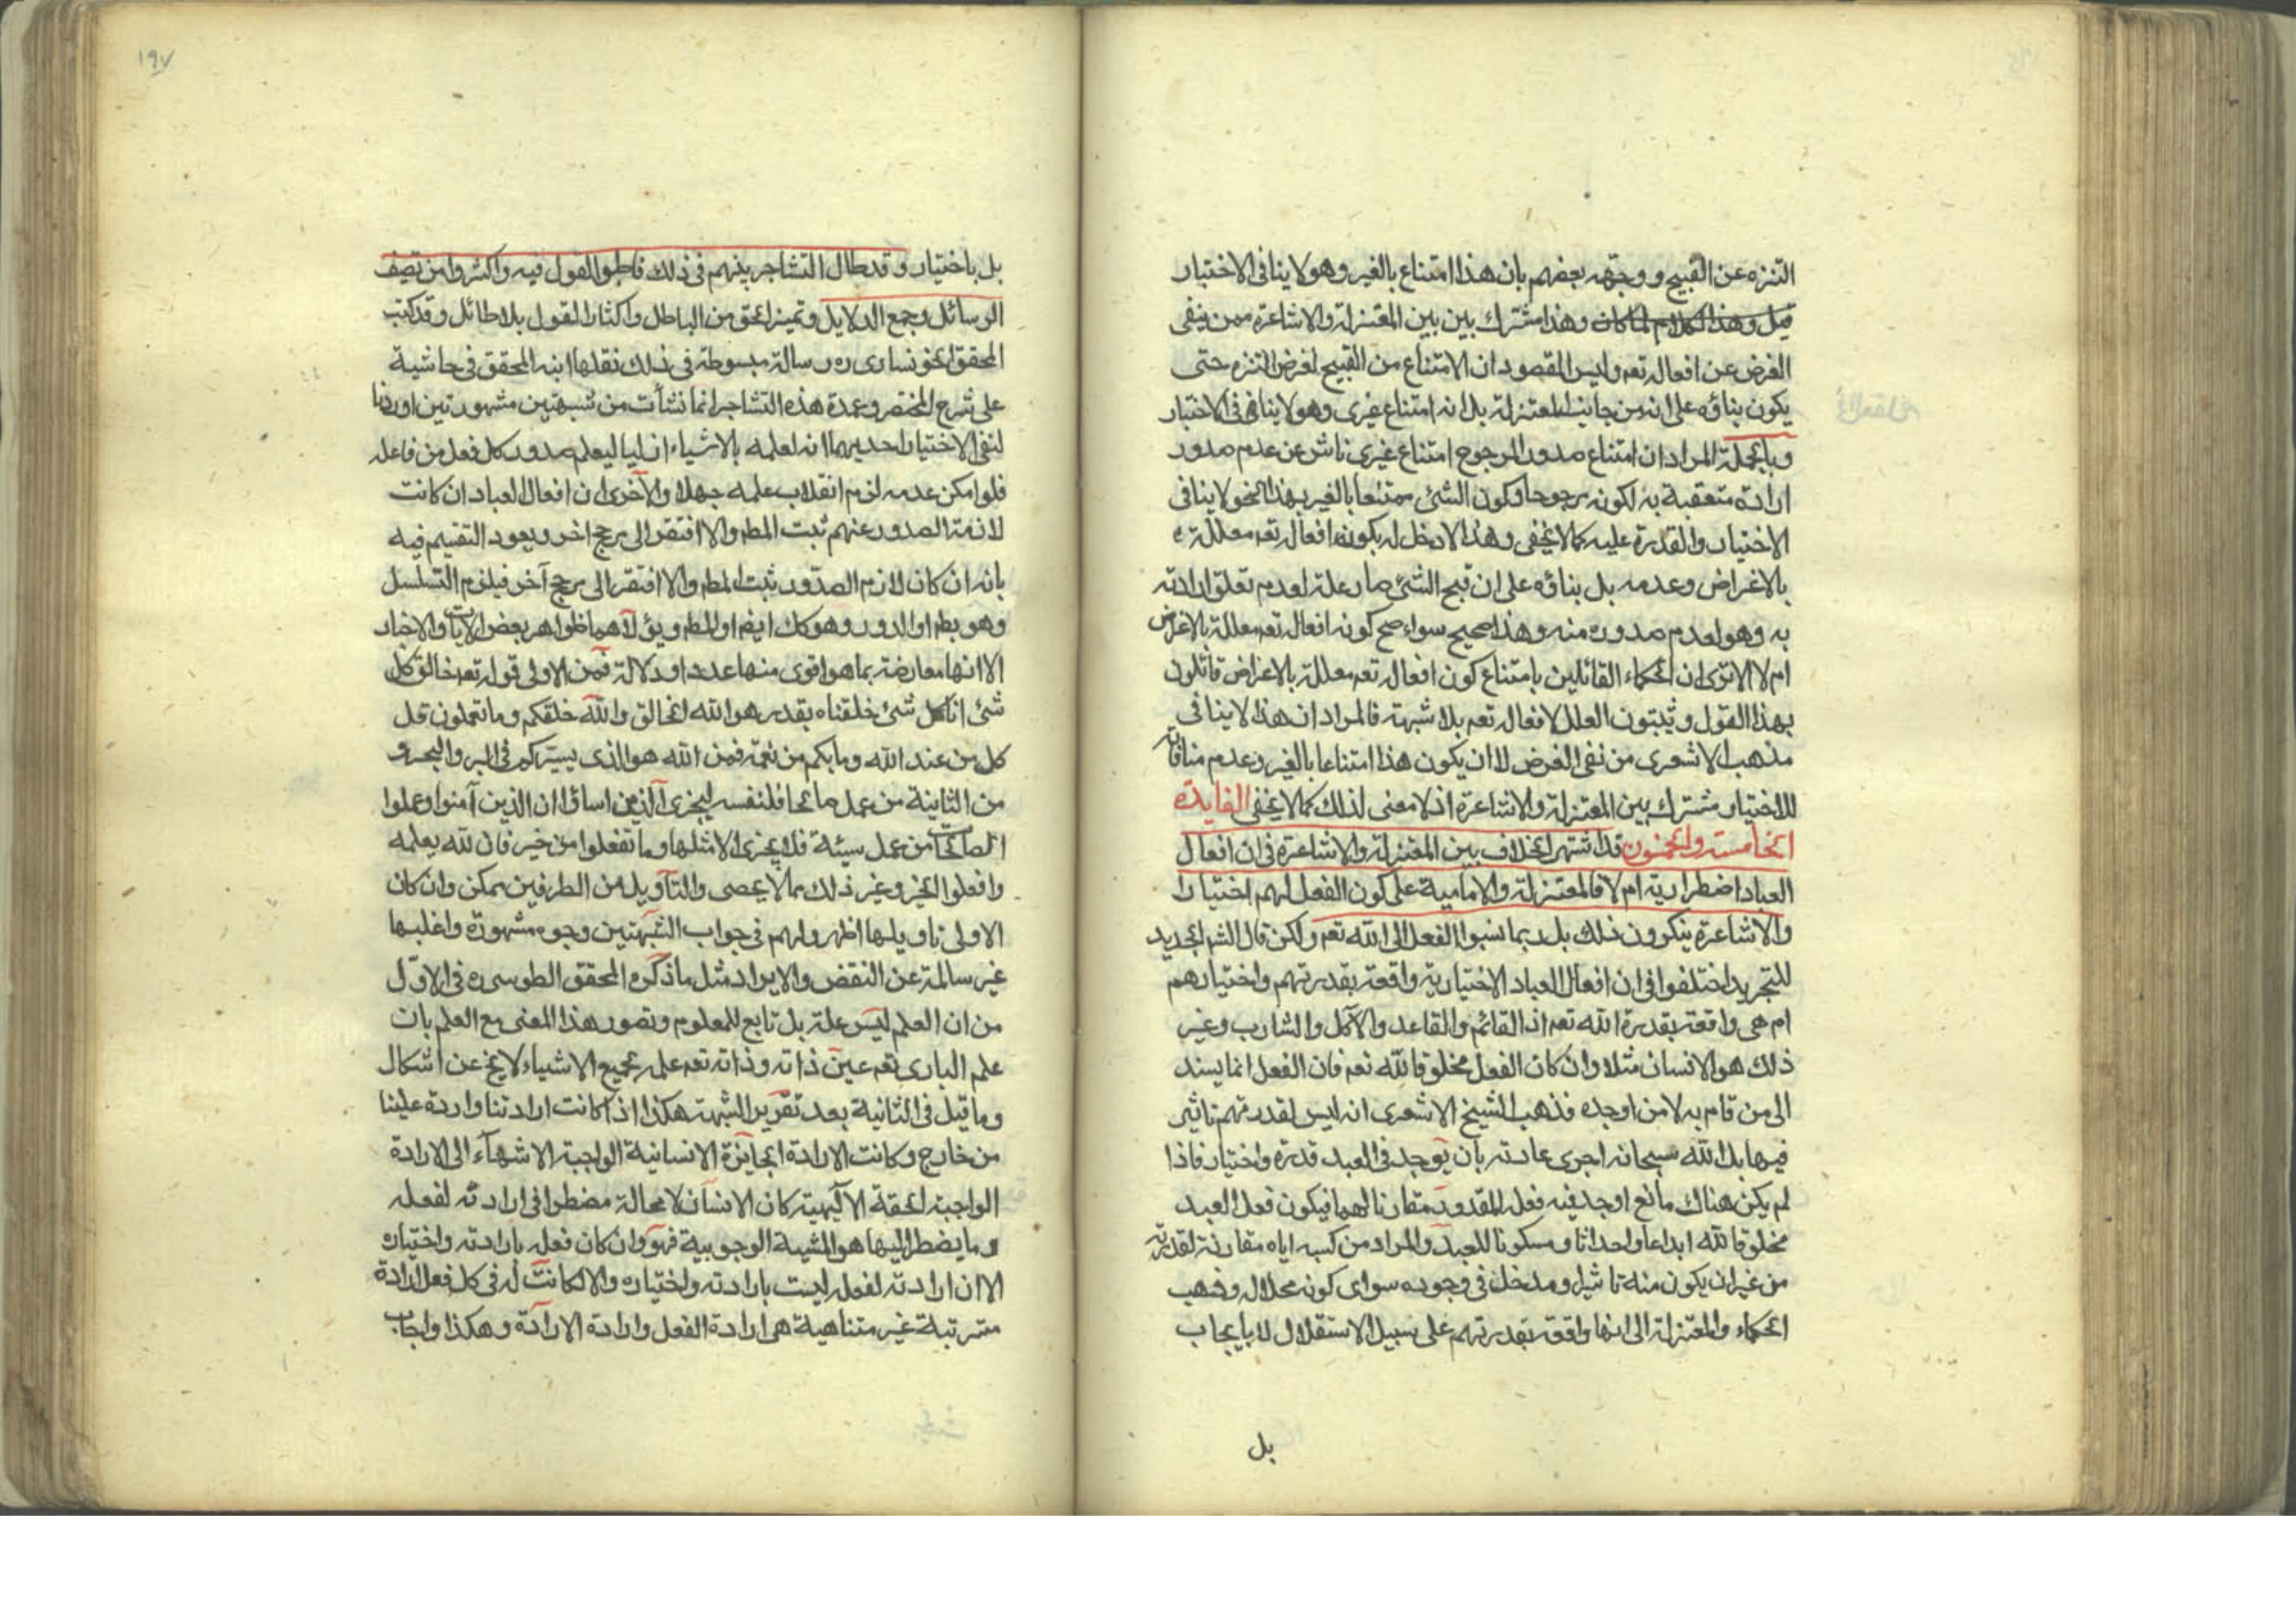 التنزه عن القبيح ووجهه بعضهم بان هذا امتناع بالغير وهو لا ينافى الاختيار
قيل وهذا الكلام لما كان وهذا مشترك بين بين المعتزلة والاشاعرة ممن ينفى
الغرض عن افعاله تعم وليس المقصود ان الامتناع من القبيح لغرض التنزه حتى
يكون بناؤه على انه من جانب المعتزلة بل انه امتناع غيرى وهو لا ينافى الاختيار
وبالجملة المراد ان امتناع صدور المرجوح امتناع غيرى ناش عن عدم صدور
ارادة متعقبة به لكونه مرجوحا وكون الشئ ممتنعا بالغير بهذا النحو لا ينافى
الاختيار والقدرة عليه كما لا يخفى وهذا لا دخل له بكون افعاله تعم معللة
بالاغراض وعدمه بل بناؤه على ان قبح الشئ صار علة لعدم تعلق ارادته
به وهو لعدم صدوره منه وهذا صحيح سواء صح كونه افعاله تعم معللة بالاغراض
ام لا الا ترى ان الحكماء القائلين بامتناع كون افعاله تعم معللة بالاغراض قائلون
بهذا القول ويثبتون العلل لافعاله تعم بلا شبهة فالمراد ان هذا لا ينافى
مذهب الاشعرى من نفى الغرض لا ان يكون هذا امتناعا بالغير وعدم منافاته
للاختيار مشترك بين المعتزلة والاشاعرة اذ لا معنى لذلك كما لا يخفى الفايدة
الخامسة والخمسون قد اشتهر الخلاف بين المعتزلة والاشاعرة فى ان افعال
العباد اضطرارية ام لا فالمعتزلة والامامية على كون الفعل لهم اختيارا
والاشاعرة ينكرون ذلك بل ربما نسبوا الفعل الى الله تعم ولكن قال الشم الجديد
للتجريد اختلفوا فى ان افعال العباد الاختيارية واقعة بقدرتهم واختيارهم
ام هى واقعة بقدرة الله تعم اذ القائم والقاعد والآكل والشارب وغير
ذلك هو الانسان مثلا وان كان الفعل مخلوقا لله تعم فان الفعل انما يسند
الى من قام به لا من اوجده فذهب الشيخ الاشعرى انه ليس لقدرتهم تاثير
فيها بل الله سبحانه اجرى عادته بان يوجد فى العبد قدرة واختيار فاذا
لم يكن هناك مانع اوجد فيه فعله المقدور مقارنا لهما فيكون فعل العبد
مخلوقا لله ابداعا واحداثا ومكسوبا للعبد والمراد من كسبه اياه مقارنة لقدرته
من غير ان يكون منه تاثير او مدخل فى وجوده سواى كونه محلا له وذهب
الحكماء والمعتزلة الى انها واقعة بقدرتهم على سبيل الاستقلال لا بايجاب
بل
١٩٧
بل باختيار وقد طال التشاجر بينهم فى ذلك فاطوا القول فيه واكثروا من تصيف
الرسائل وجمع الدلايل وتميز الحق من الباطل واكثار القول بلا طائل وقد كتب
المحقق الخونسارى ره رسالة مبسوطة فى ذلك نقلها ابنه المحقق فى حاشية
على شرح المختصر وعمدة هذه التشاجر انما نشأت من شبهتين مشهورتين اوردنا
لنفى الاختيار احديهما انه لعلمه بالاشياء ازليا ليعلم صدور كل فعل من فاعله
فلو امكن عدمه لزم انقلاب علمه جهلا والآخرى ان افعال العباد ان كانت
لازمة الصدور عنهم ثبت المطم والا افتقر الى مرجح اخر ويعود التقسيم فيه
بانه ان كان لازم الصدور ثبت المطم والا افتقر الى مرجح آخر فيلزم التسلسل
وهو بطم او الدور وهو كك ايضم او المطم ويؤلآهما ظواهر بعض الايات والاخبار
الا انها معارضة بما هو اقوى منها عددا ودلالة فمن الاولى قوله تعم خالق كل
شئ انا كل شئ خلقناه بقدر هو الله الخالق والله خلقكم وما تعملون قل
كل من عند الله وما بكم من نعمة فمن الله هو الذى يسيركم فى البر والبحر و
من الثانية من عمل صالحا فلنفسه ليجزى الذين اساؤا ان الذين آمنوا وعملوا
الصالحات من عمل سيئة فلا يجزى الا مثلها وما تفعلوا من خير فان الله يعلمه
وافعلوا الخير وغير ذلك مما لا يحصى والتأويل من الطرفين ممكن وان كان
الاولى تاويلها اظهر ولهم فى جواب الشبهتين وجوه مشهورة واغلبها
غير سالمة عن النقض والايراد مثل ما ذكره المحقق الطوسى ره فى الاول
من ان العلم ليس علة بل تابع للمعلوم وتصور هذا المعنى مع العلم بان
علم البارى تعم عين ذاته وذاته تعم علة لجميع الاشياء لا يخ عن اشكال
وما قيل فى الثانية بعد تقرير الشبهة هكذا اذا كانت ارادتنا واردة علينا
من خارج وكانت الارادة الجايزة الانسانية الواجبة الانتهاء الى الارادة
الواجبة الحقة الالهية كان الانسان لا محالة مضطرا فى ارادته لفعله
وما يضطر اليها هو المشية الوجوبية فهو وان كان فعله بارادته واختياره
الا ان ارادته لفعله ليست بارادته واختياره والا لكانت له فى كل فعل ارادة
مترتبة غير متناهية هى ارادة الفعل وارادة الارادة وهكذا واجاب